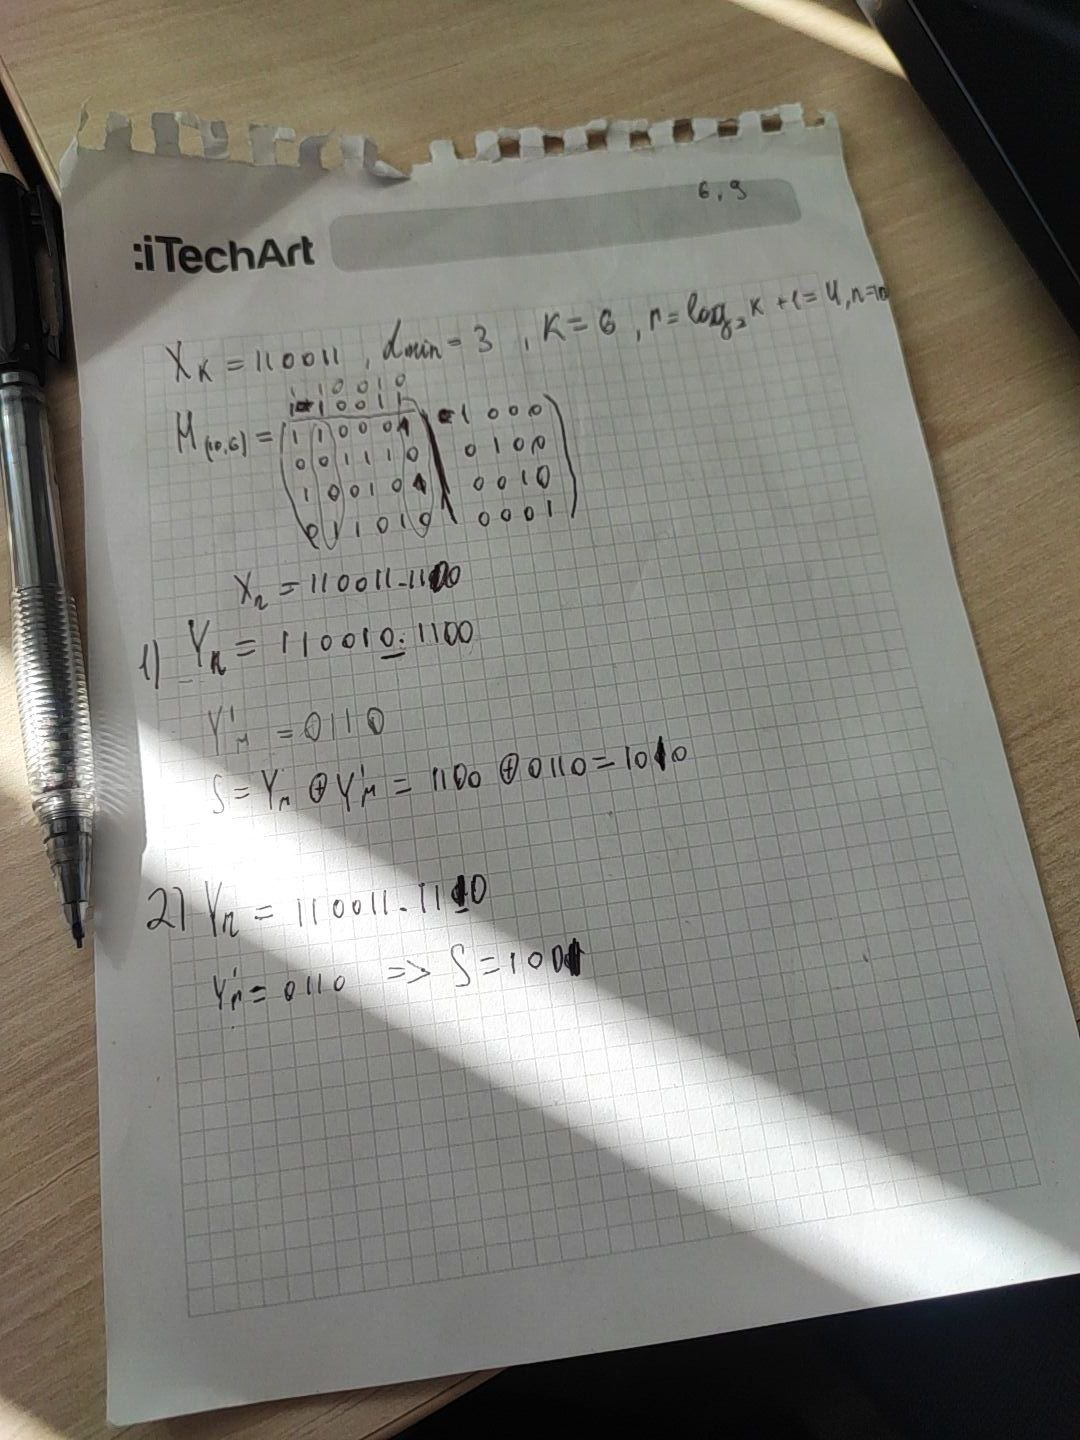 6, 9
:iTechArt
X_K = 110011, d_min = 3, K = 6, r = log_2 K + 1 = 4, n = 10
1 1 0 0 1 0
1 1 0 0 1 1
M_(10,6) = 1 1 0 0 0 1 | 1 0 0 0
0 0 1 1 1 0 | 0 1 0 0
1 0 0 1 0 1 | 0 0 1 0
0 1 1 0 1 0 | 0 0 0 1
X_n = 110011-1100
1) Y_n = 110010: 1100
Y'_r = 0110
S = Y_r ⊕ Y'_r = 1100 ⊕ 0110 = 1010
2) Y_n = 110011-1110
Y'_r = 0110 => S = 1001